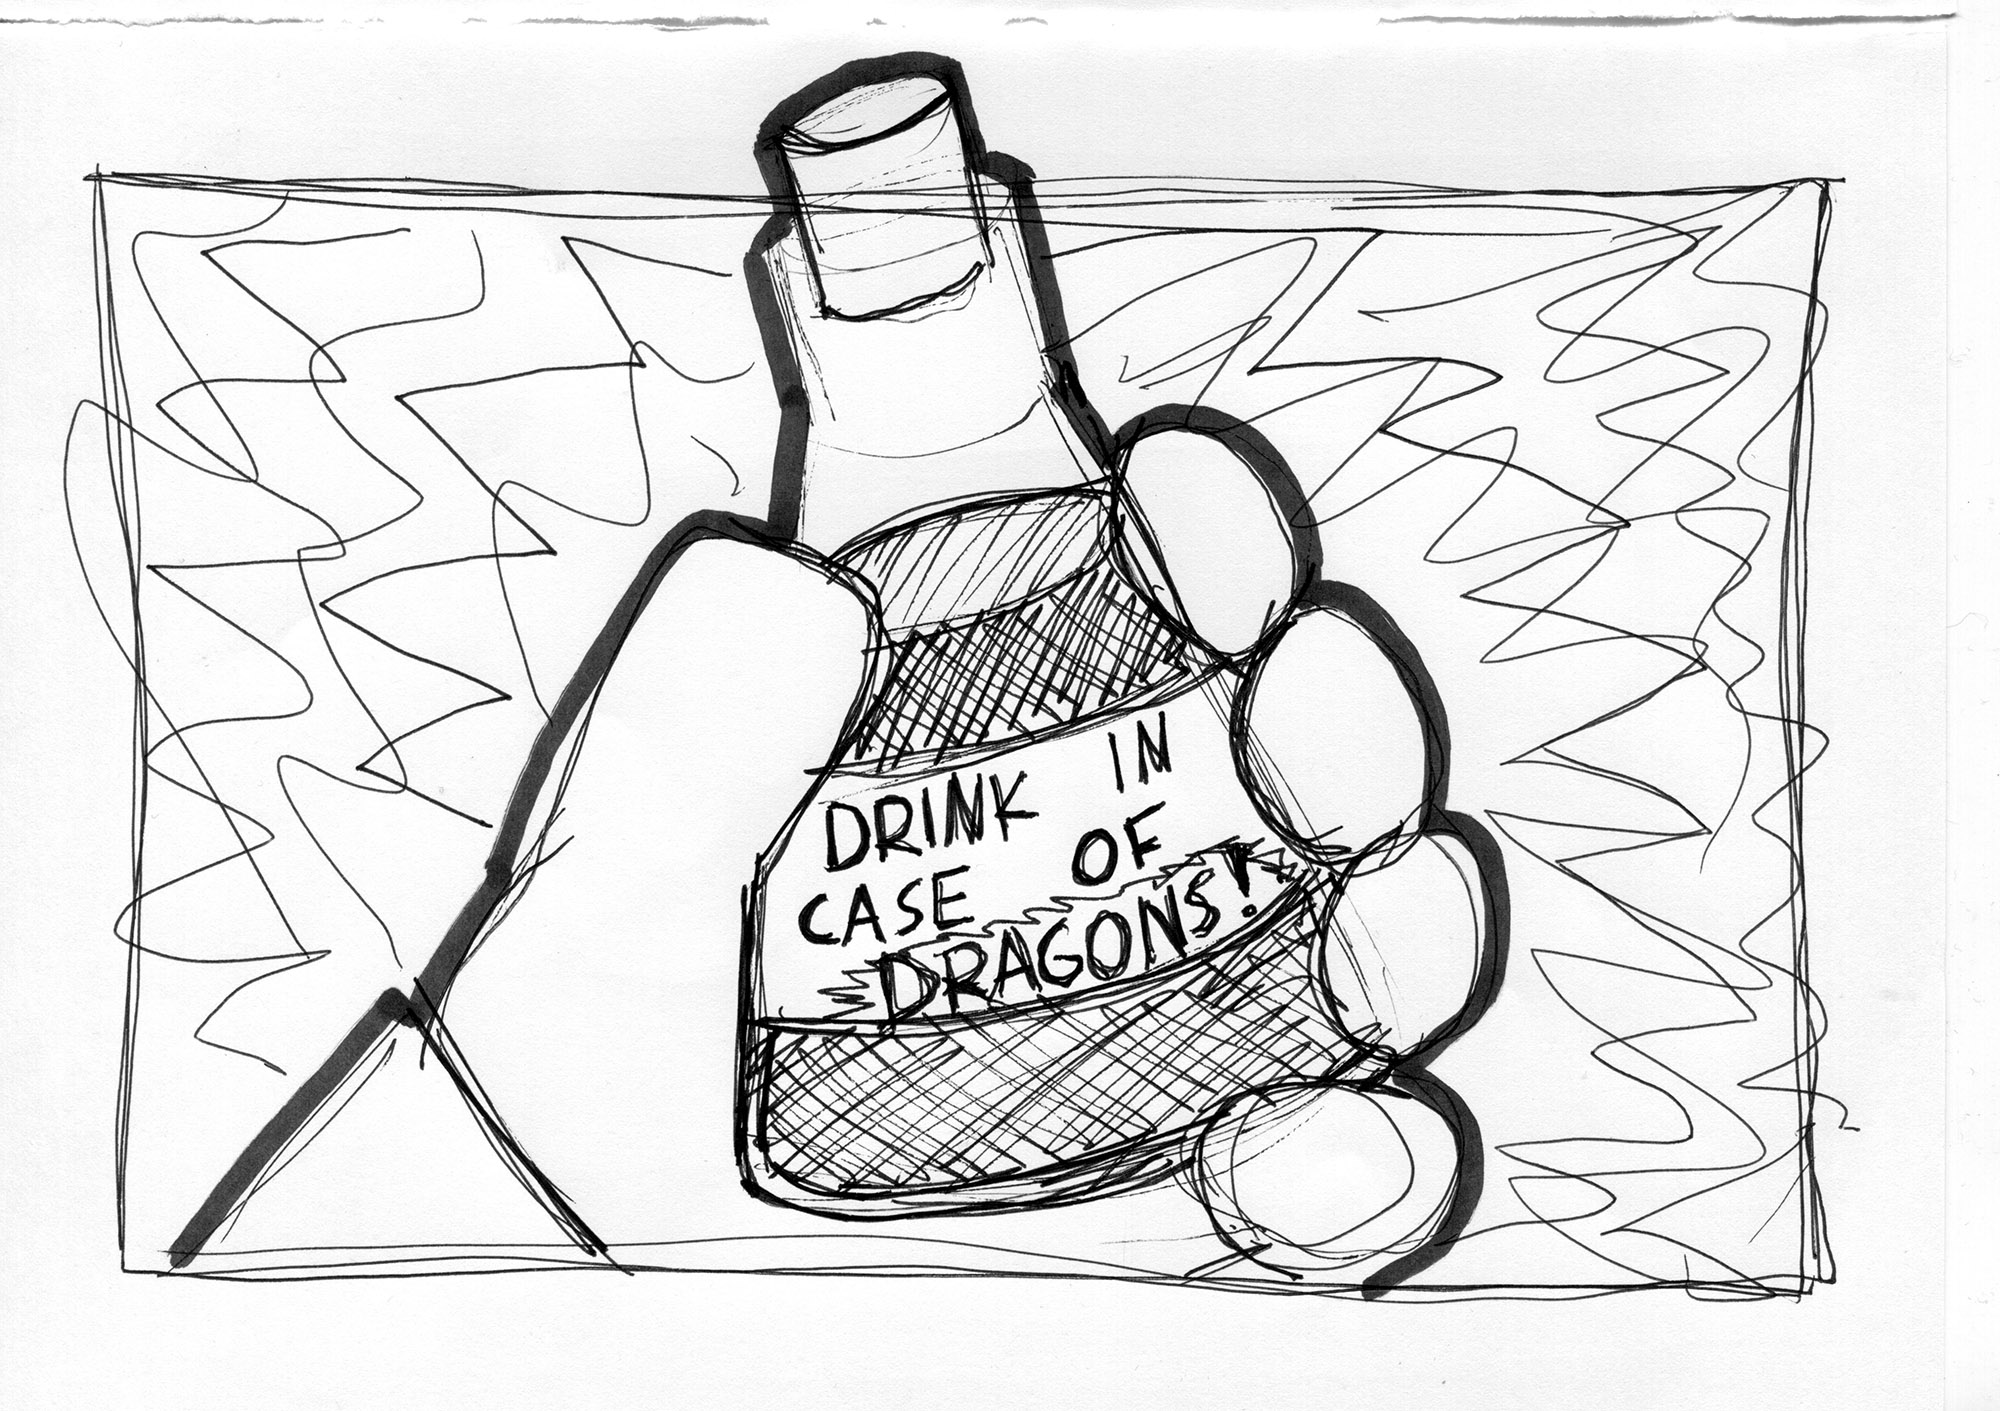 DRINK IN
CASE OF
DRAGONS!